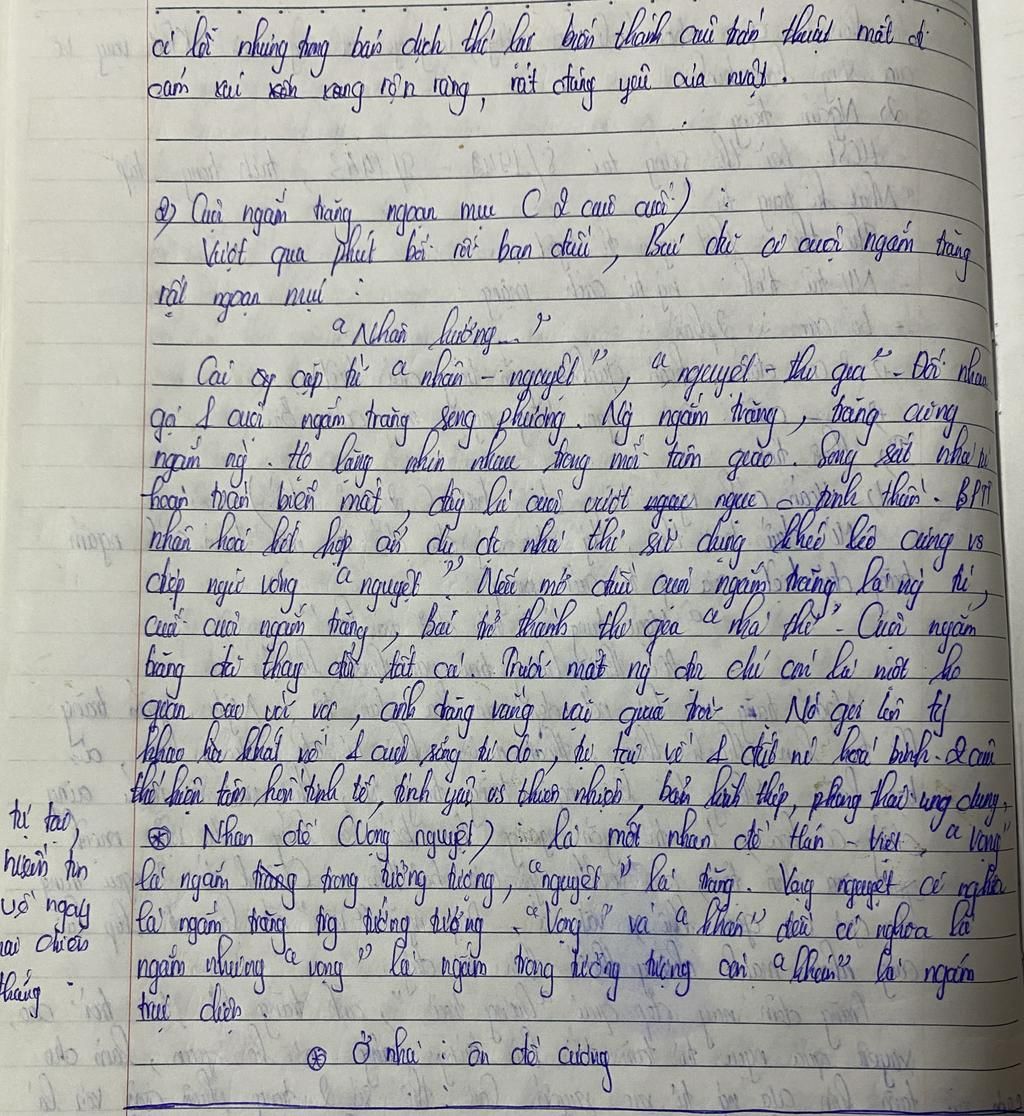 cá lời nhưng trong bản dịch thì lại biến thành câu trần thuật mất đi
cảm xúc xốn xang rộn ràng, rất đáng yêu của nvật.
2) Cuộc ngắm trăng ngoạn mục (2 câu cuối) :
Vượt qua phút bối rối ban đầu, Bác đã có cuộc ngắm trăng
rất ngoạn mục :
"Nhân hướng..."
Các cặp từ "nhân - nguyệt", "nguyệt - thi gia" - Đối nhau
gợi 1 cuộc ngắm trăng song phương. Ng ngắm trăng, trăng cũng
ngắm ng. Họ lặng nhìn nhau trong mối tâm giao. Song sắt nhà tù
hoàn toàn biến mất, đây là cuộc vượt ngục tinh thần. BPTT
nhân hoá kết hợp ẩn dụ đc nhà thơ sử dụng khéo léo cùng vs
điệp ngữ vòng "nguyệt". Nếu mở đầu cuộc ngắm trăng là ng tù,
cuối cuộc ngắm trăng, Bác trở thành thi gia "nhà thơ" - Cuộc ngắm
trăng đã thay đổi tất cả. Trước mắt ng đọc chỉ còn là một ko
gian cao vời vợi, ánh trăng vằng vặc giữa trời. Nó gợi lên
khao khát về 1 cuộc sống tự do, tự tại về 1 đất nc hoà bình. 2 câu
thể hiện tâm hồn tinh tế, tình yêu vs thiên nhiên, bản lĩnh thép, phong thái ung dung,
tự tại,
niềm tin
về ngày
mai chiến
thắng.
⊛ Nhan đề (Vọng nguyệt) : là một nhan đề Hán - Việt, "vọng"
là ngắm trăng trong tưởng tượng, "nguyệt" là trăng. Vọng nguyệt có nghĩa
là ngắm trăng trg tưởng tượng. "Vọng" và "khán" đều có nghĩa là
ngắm nhưng "vọng" là ngắm trong tưởng tượng còn "khán" là ngắm
trực diện
⊛ Ở nhà : ôn đề cương